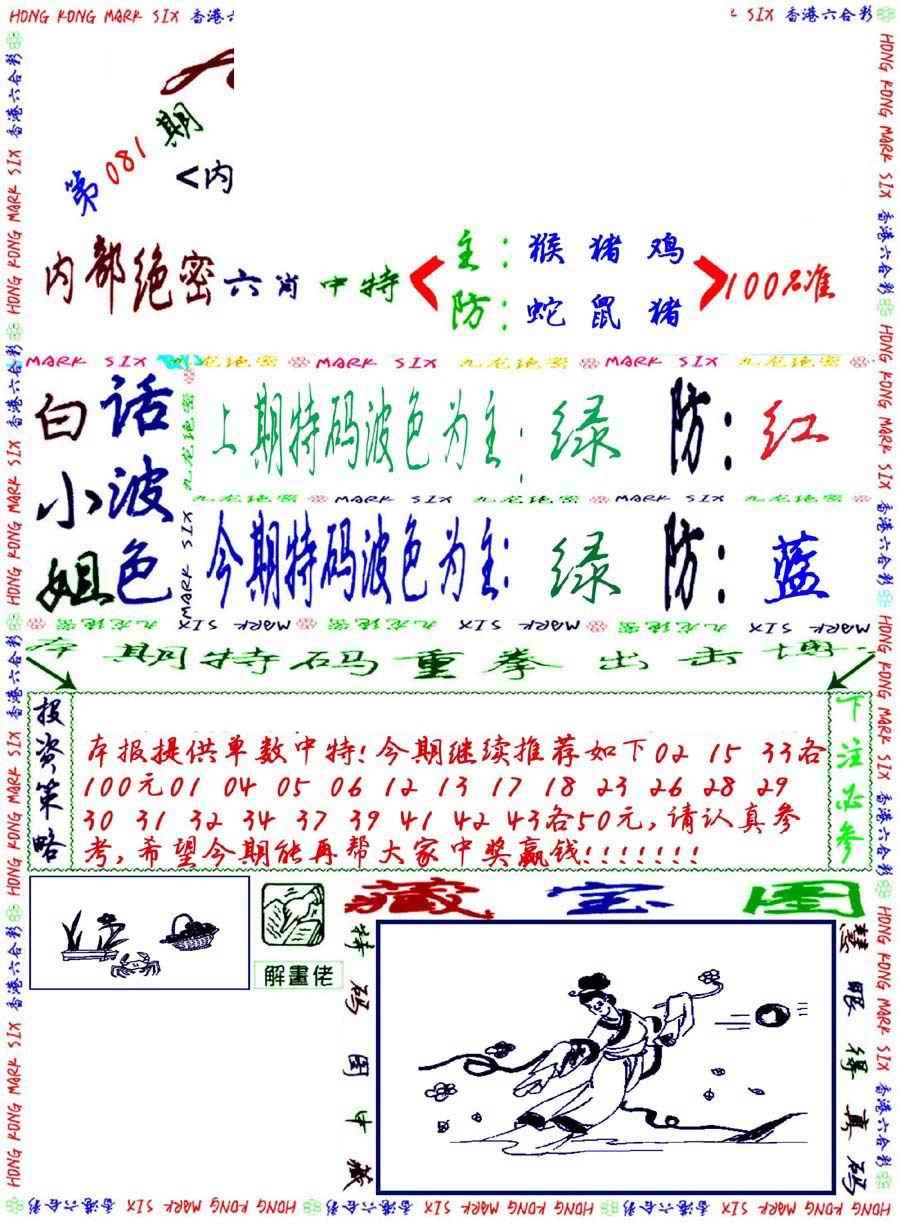 HONG KONG MARK SIX 香港六合彩
SIX 香港六合彩
第081期
<内
内部绝密六肖中特
主：猴 猪 鸡
防：蛇 鼠 猪
100%准
MARK SIX 九龙绝密 MARK SIX 九龙绝密 MARK SIX 九龙绝密
白话
小波
姐色
上期特码波色为主：绿 防：红
九龙绝密 MARK SIX 九龙绝密 MARK SIX 九龙绝密
今期特码波色为主：绿 防：蓝
九龙绝密 MARK SIX 九龙绝密 MARK SIX 九龙绝密 MARK SIX
本期特码重拳出击
投资策略
本报提供单数中特！今期继续推荐如下02 15 33各
100元01 04 05 06 12 13 17 18 23 26 28 29
30 31 32 34 37 39 41 42 43各50元,请认真参
考,希望今期能再帮大家中奖赢钱!!!!!!!
下注必参
解畫佬
藏宝图
特码图中藏
慧眼得真码
HONG KONG MARK SIX 香港六合彩